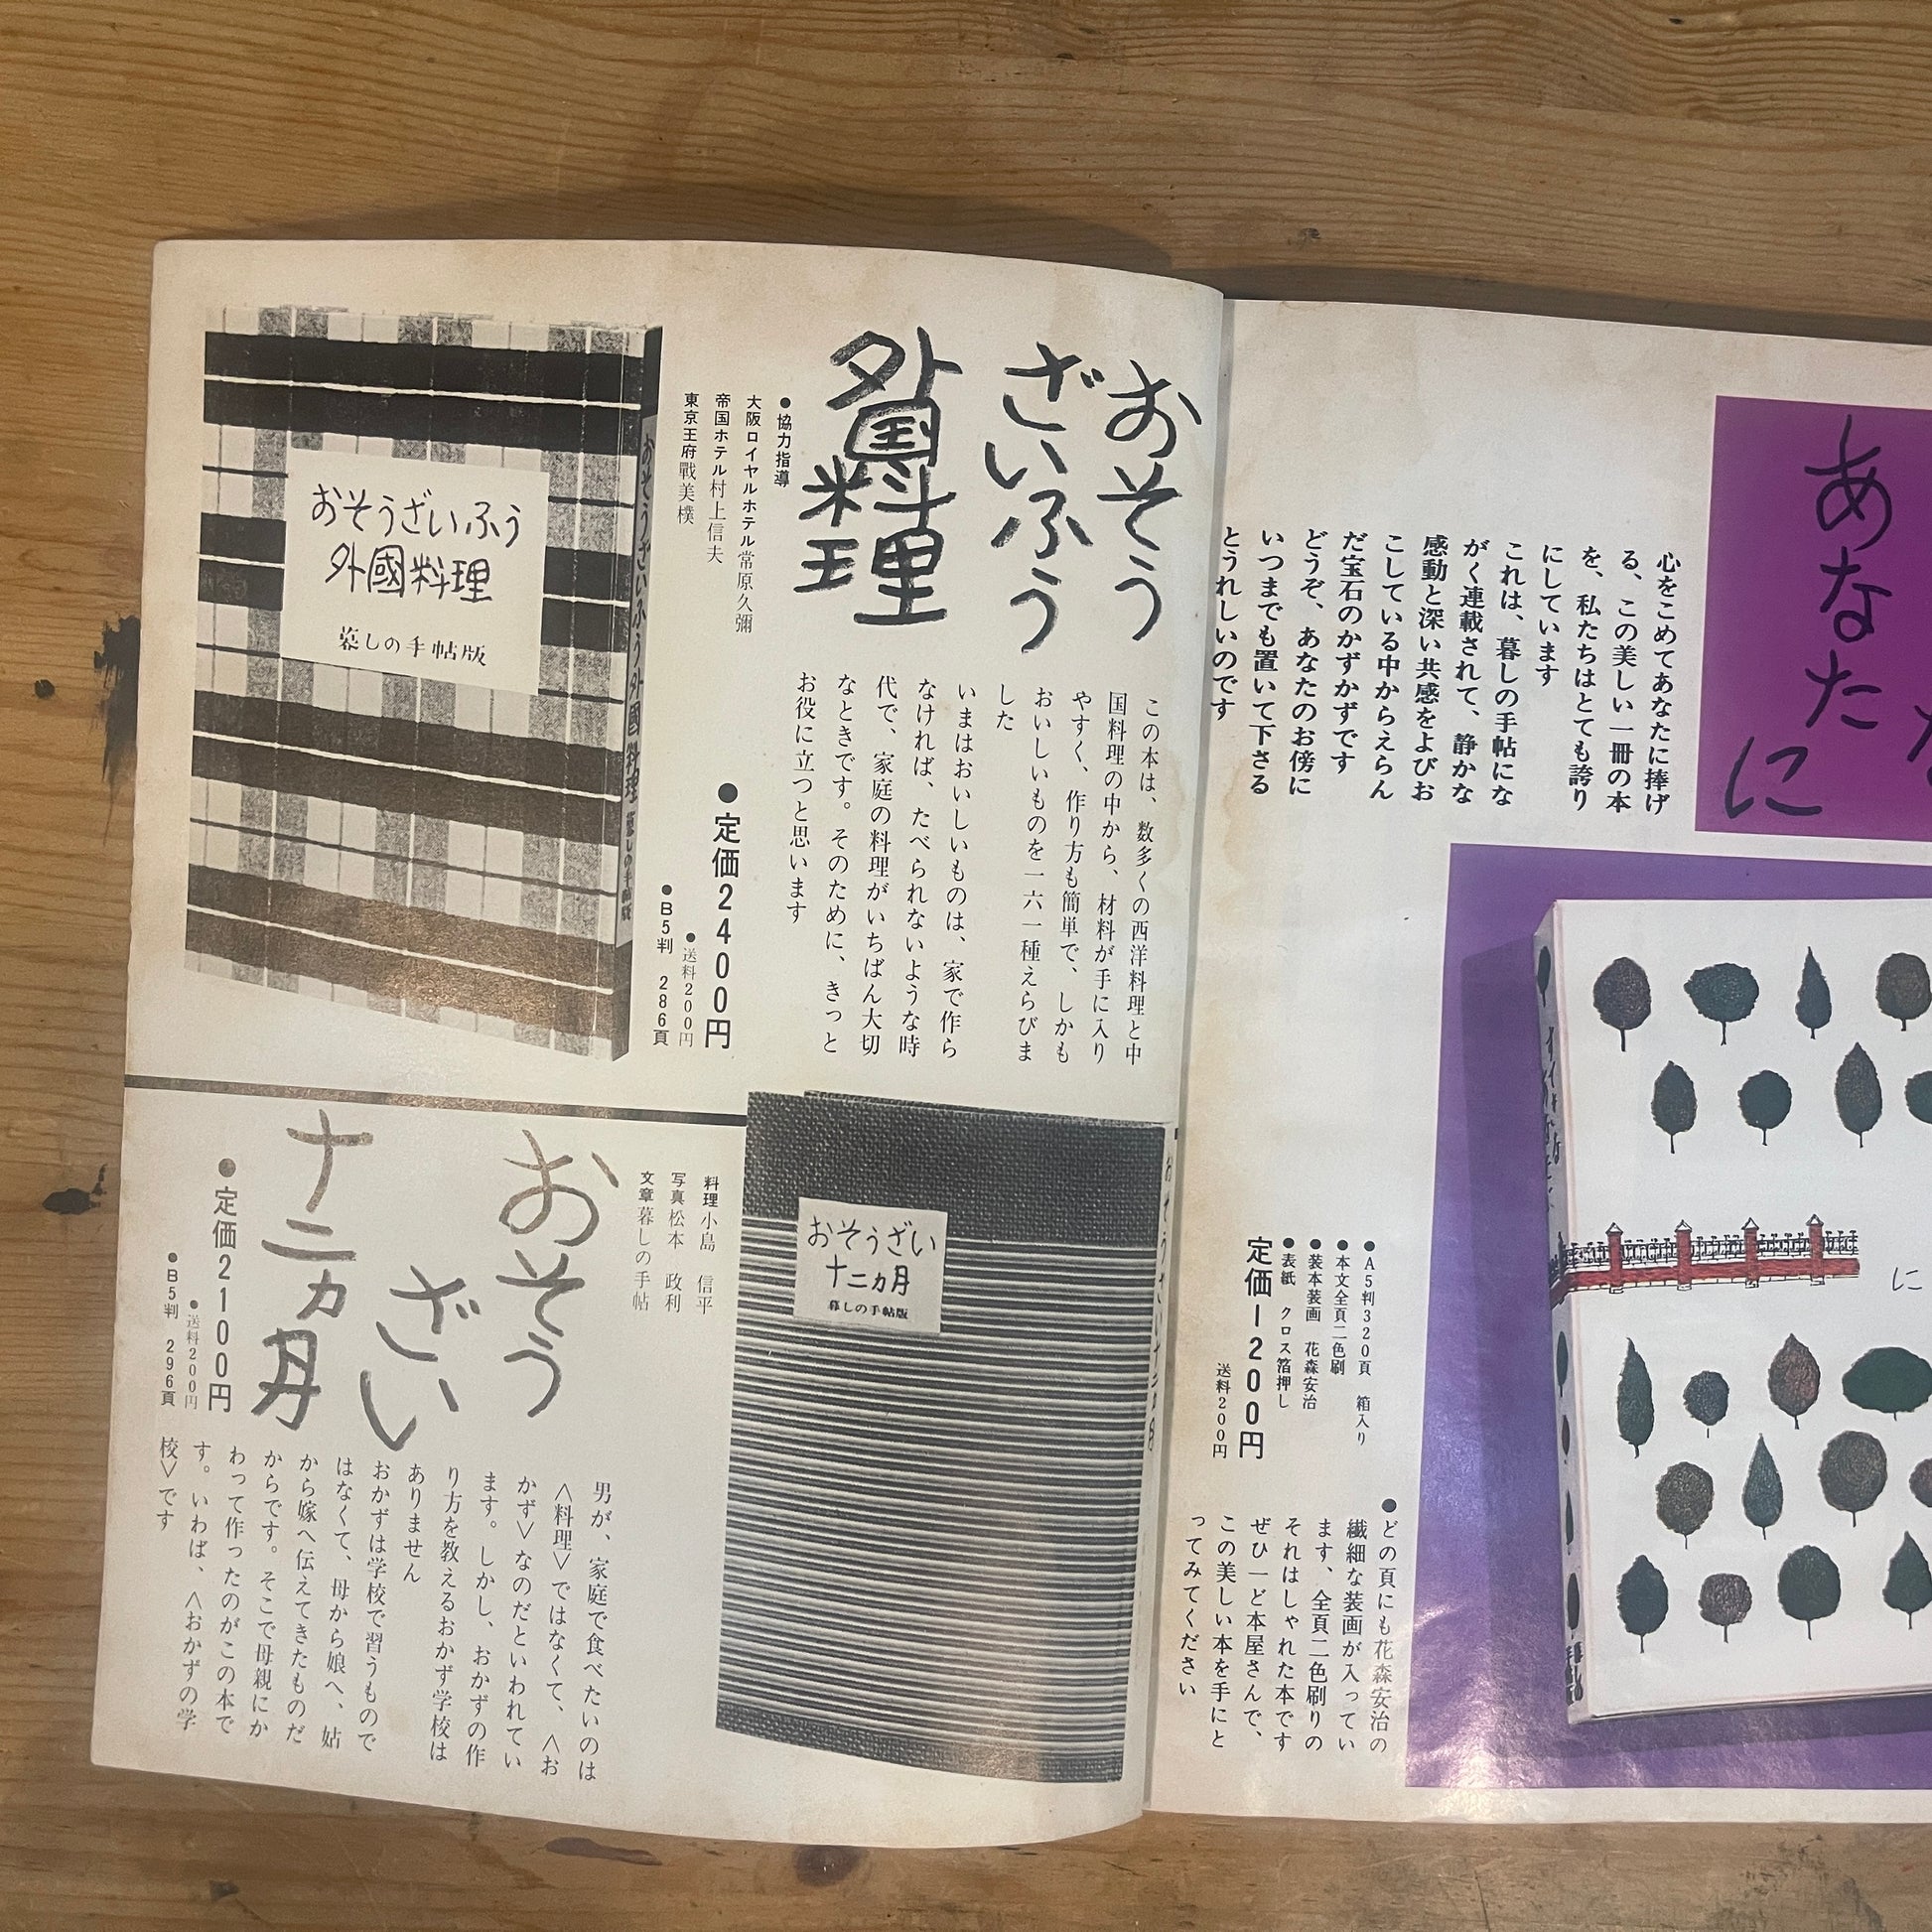 あなたに
心をこめてあなたに捧げ
る、この美しい一冊の本
を、私たちはとても誇り
にしています
これは、暮しの手帖にな
がく連載されて、静かな
感動と深い共感をよびお
こしている中からえらん
だ宝石のかずかずです
どうぞ、あなたのお傍に
いつまでも置いて下さる
とうれしいのです
●A5判320頁 箱入り
●本文全頁二色刷
●装本装画 花森安治
●表紙 クロス箔押し
定価1200円
送料200円
●どの頁にも花森安治の
繊細な装画が入ってい
ます、全頁二色刷りの
それはしゃれた本です
ぜひ一ど本屋さんで、
この美しい本を手にと
ってみてください
に
おそう
ざいふう
外国料理
●協力指導
大阪ロイヤルホテル常原久彌
帝国ホテル村上信夫
東京王府戰美樸
この本は、数多くの西洋料理と中
国料理の中から、材料が手に入り
やすく、作り方も簡単で、しかも
おいしいものを一六一種えらびま
した
いまはおいしいものは、家で作ら
なければ、たべられないような時
代で、家庭の料理がいちばん大切
なときです。そのために、きっと
お役に立つと思います
●定価2400円
●送料200円
●B5判 286頁
おそうざいふう
外國料理
暮しの手帖版
おそうざいふう外國料理 暮しの手帖版
おそうざい
十二カ月
暮しの手帖版
おそうざい十二カ月
料理小島 信平
写真松本 政利
文章暮しの手帖
おそう
ざい
十二ヵ月
●定価2100円
●送料200円
●B5判 296頁
男が、家庭で食べたいのは
＜料理＞ではなくて、＜お
かず＞なのだといわれてい
ます。しかし、おかずの作
り方を教えるおかず学校は
ありません
おかずは学校で習うもので
はなくて、母から娘へ、姑
から嫁へ伝えてきたものだ
からです。そこで母親にか
わって作ったのがこの本で
す。いわば、＜おかずの学
校＞です